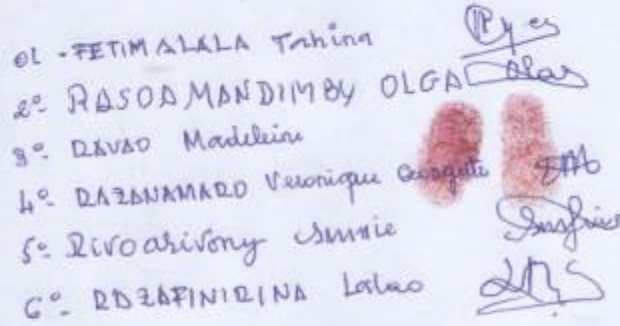 01 - FETIMALALA Tahina
2º- RASOAMANDIMBY OLGA
3º- RAVAO Madeleine
4º- RAZANAMARO Veronique Georgette
5º- Rivoarivony
6º- RAZAFINIRINA Lalao